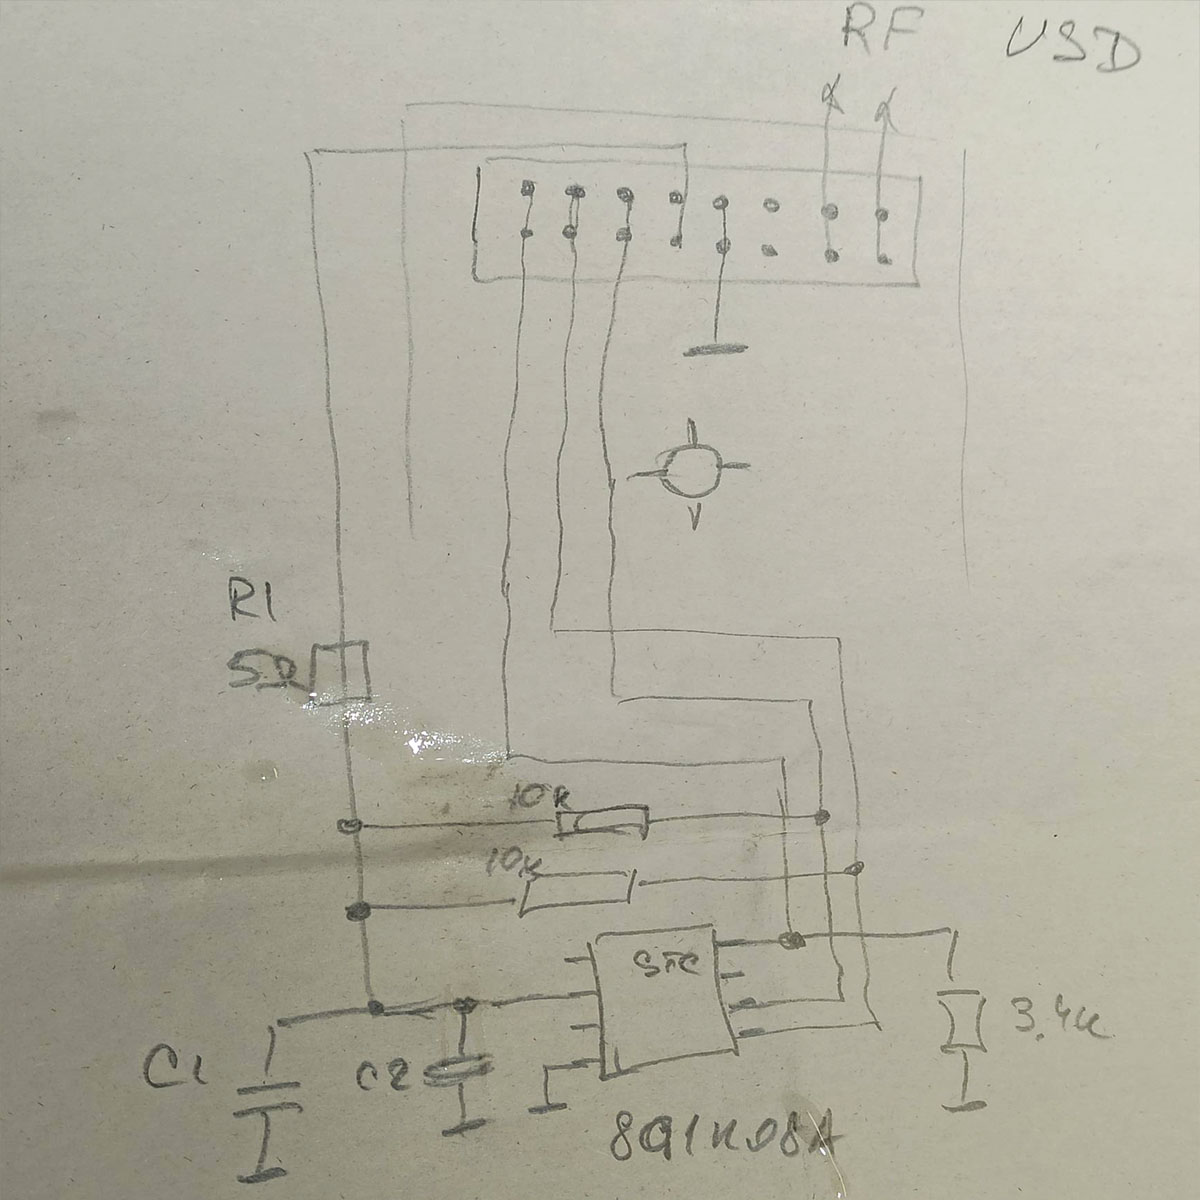 RF USD
R1
5Ω
10k
10k
STC
3.4k
C1
C2
8G1K08A